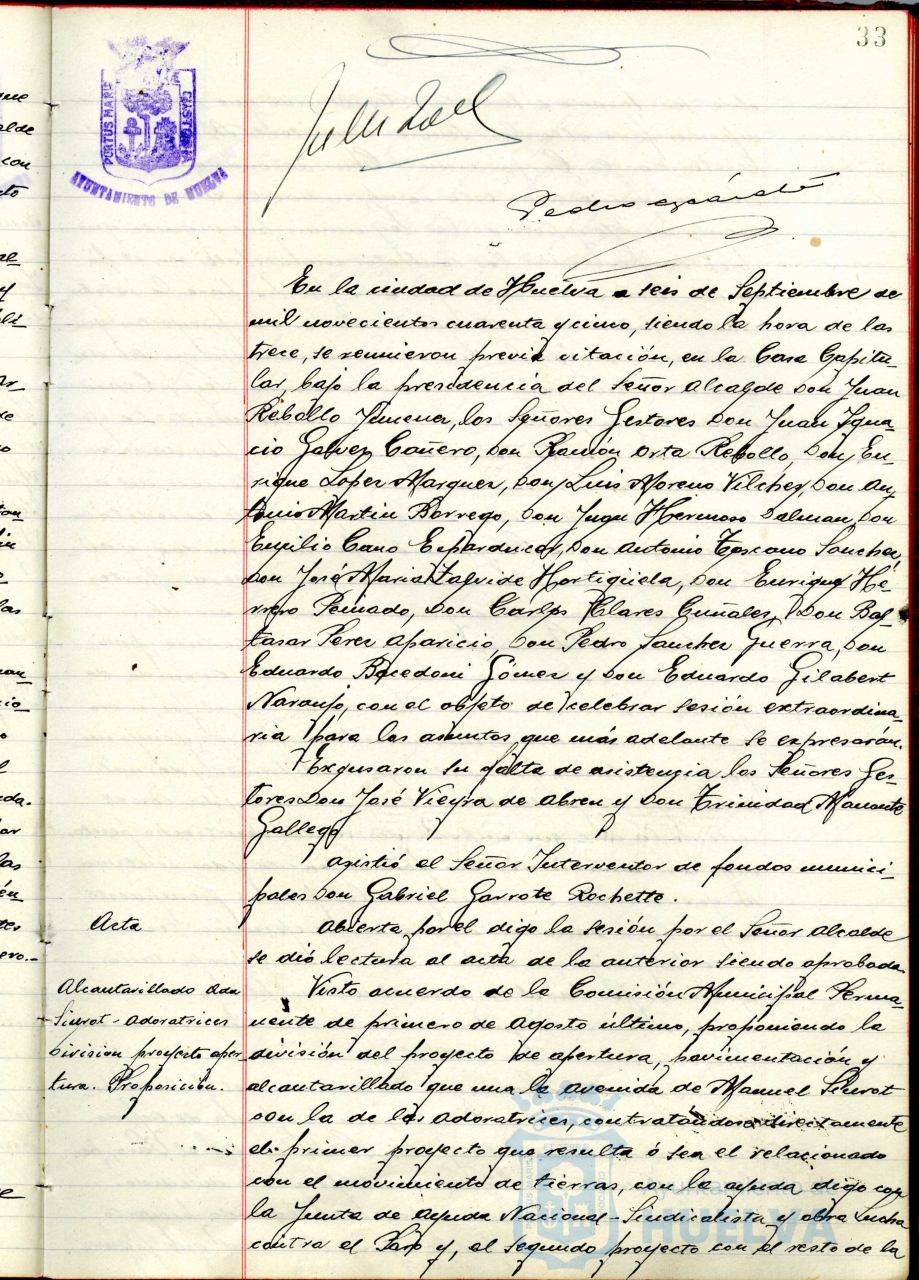 33
PORTUS MARIS
ET TERRÆ CUSTODIA
AYUNTAMIENTO DE HUELVA
Pedro
En la ciudad de Huelva a seis de Septiembre de
mil novecientos cuarenta y cinco, siendo la hora de las
trece, se reunieron previa citación, en la Casa Capitu-
lar, bajo la presidencia del Señor Alcalde Don Juan
Rebollo Jimena, los Señores Gestores Don Juan Igna-
cio Galvez Cañero, Don Ramón Orta Rebollo, Don En-
rique Lopez Marquez, Don Luis Moreno Vilchez, Don An-
tonio Martin Borrego, Don Juan Hermoso Dalman, Don
Emilio Cano Don Antonio Toscano Sanchez,
Don José Maria Hortigüela, Don Enrique He-
rrero Peinado, Don Carlos Clares Don Bal-
tasar Perez Aparicio, Don Pedro Sanchez Guerra, Don
Eduardo Bocedoni Gómez y Don Eduardo Gilabert
Naranjo, con el objeto de celebrar sesión extraordina-
ria para los asuntos que más adelante se expresarán.
Excusaron su falta de asistencia los Señores Ges-
tores Don José Vieyra de Abreu y Don Trinidad
Gallego
Asistió el Señor Interventor de fondos munici-
pales Don Gabriel Garrote Rochette.
Acta
Abierta por el digo la sesión por el Señor Alcalde
se dió lectura al acta de la anterior siendo aprobada
Alcantarillado Avda
Siurot - Adoratrices
Division proyecto aper-
tura. Proposición.
Visto acuerdo de la Comisión Municipal Perma-
nente de primero de Agosto último, proponiendo la
división del proyecto de apertura, pavimentación y
alcantarillado que una la avenida de Manuel Siurot
con la de las Adoratrices, contratándose directamente
el primer proyecto que resulta ó sea el relacionado
con el movimiento de tierras, con la ayuda digo con
la Junta de Ayuda Nacional-Sindicalista y obra Lucha
contra el Paro y, el segundo proyecto con el resto de la
Ayuntamiento de
HUELVA